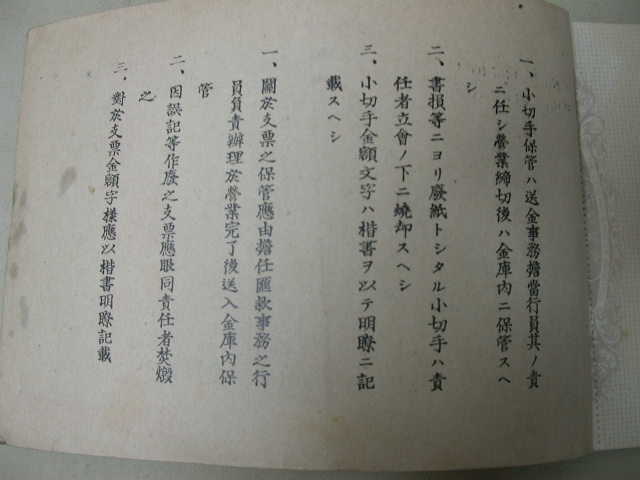 一、小切手保管ハ送金事務擔當行員其ノ責
ニ任シ營業締切後ハ金庫內ニ保管スヘ
シ
二、書損等ニヨリ廢紙トシタル小切手ハ責
任者立會ノ下ニ燒却スヘシ
三、小切手金額文字ハ楷書ヲ以テ明瞭ニ記
載スヘシ
一、關於支票之保管應由擔任匯款事務之行
員負責辦理於營業完了後送入金庫內保
管
二、因誤記等作廢之支票應眼同責任者焚燬
之
三、對於支票金額字樣應以楷書明瞭記載